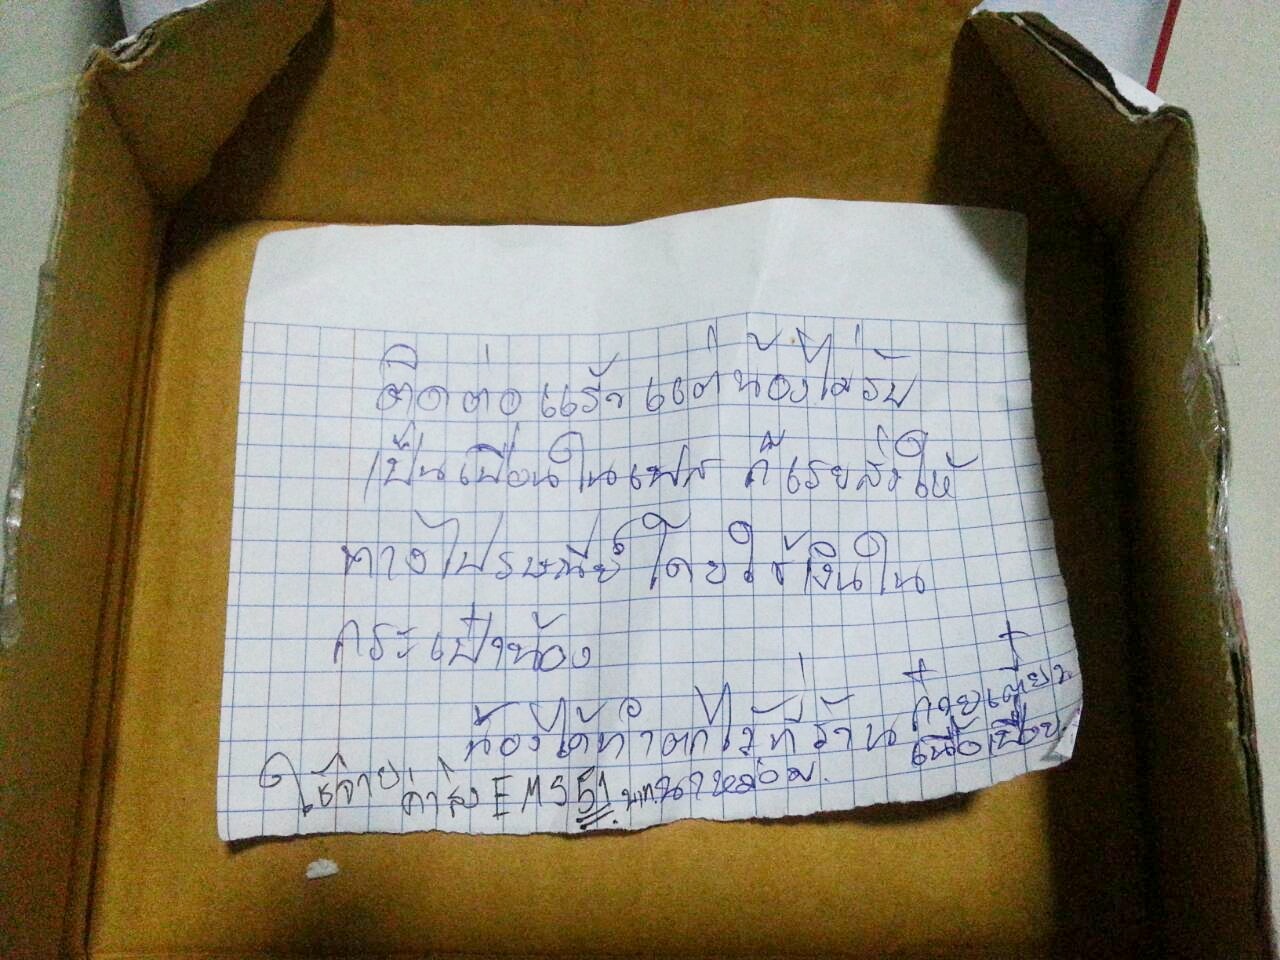 ติดต่อแร้ว แต่น้องไม่รับ
เป็นเพื่อนในเฟส ก็เรยส่งให้
ทางไปรษณีย์ โดยใช้เงินใน
กระเป๋าน้อง
น้องได้ทำตกไว้ที่ร้าน ก๋วยเตี๋ยว
เนื้อเปื่อย
ใช้จ่ายค่าส่ง EMS 51 บาท นาหล่อม.